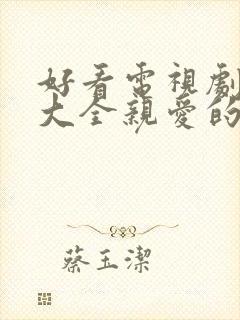 好看電視劇
大全親愛的
蔡玉潔